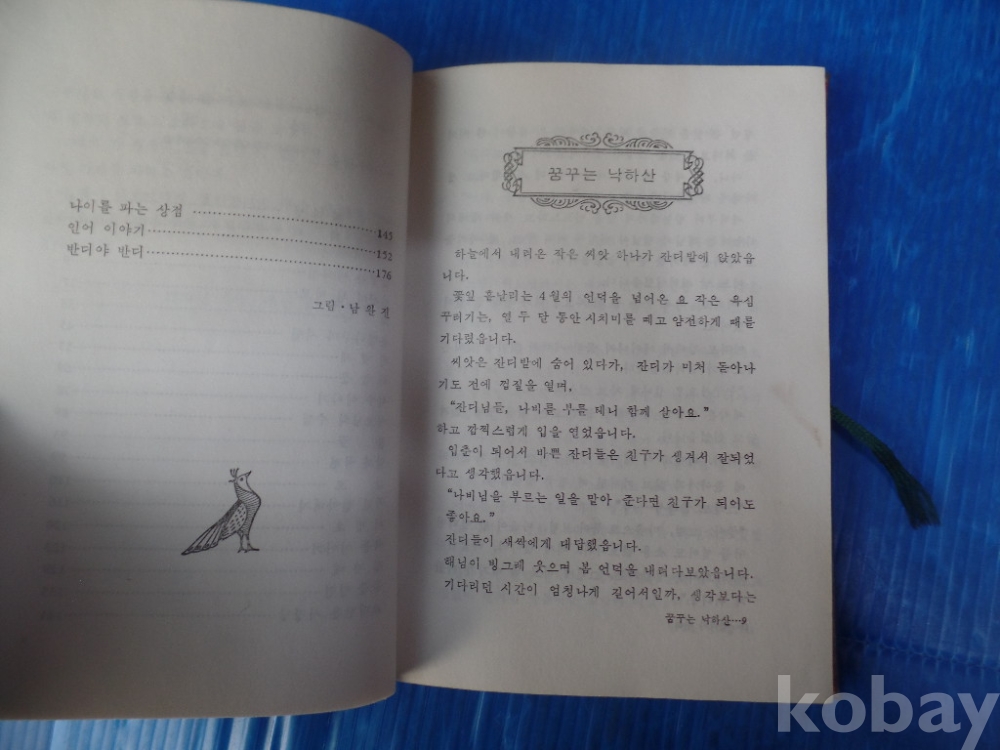 나이를 파는 상점 ································145
인어 이야기·····································152
반디야 반디·····································176
그림·남완진
꿈꾸는 낙하산
하늘에서 내려온 작은 씨앗 하나가 잔디밭에 앉았읍
니다.
꽃잎 흩날리는 4월의 언덕을 넘어온 요 작은 욕심
꾸러기는, 열 두 달 동안 시치미를 떼고 얌전하게 때를
기다렸읍니다.
씨앗은 잔디밭에 숨어 있다가, 잔디가 미처 돋아나
기도 전에 껍질을 열며,
“잔디님들, 나비를 부를 테니 함께 살아요.”
하고 깜찍스럽게 입을 열었읍니다.
입춘이 되어서 바쁜 잔디들은 친구가 생겨서 잘되었
다고 생각했읍니다.
“나비님을 부르는 일을 맡아 준다면 친구가 되어도
좋아요.”
잔디들이 새싹에게 대답했읍니다.
해님이 빙그레 웃으며 봄 언덕을 내려다보았읍니다.
기다리던 시간이 엄청나게 길어서인가, 생각보다는
꿈꾸는 낙하산…9
kobay